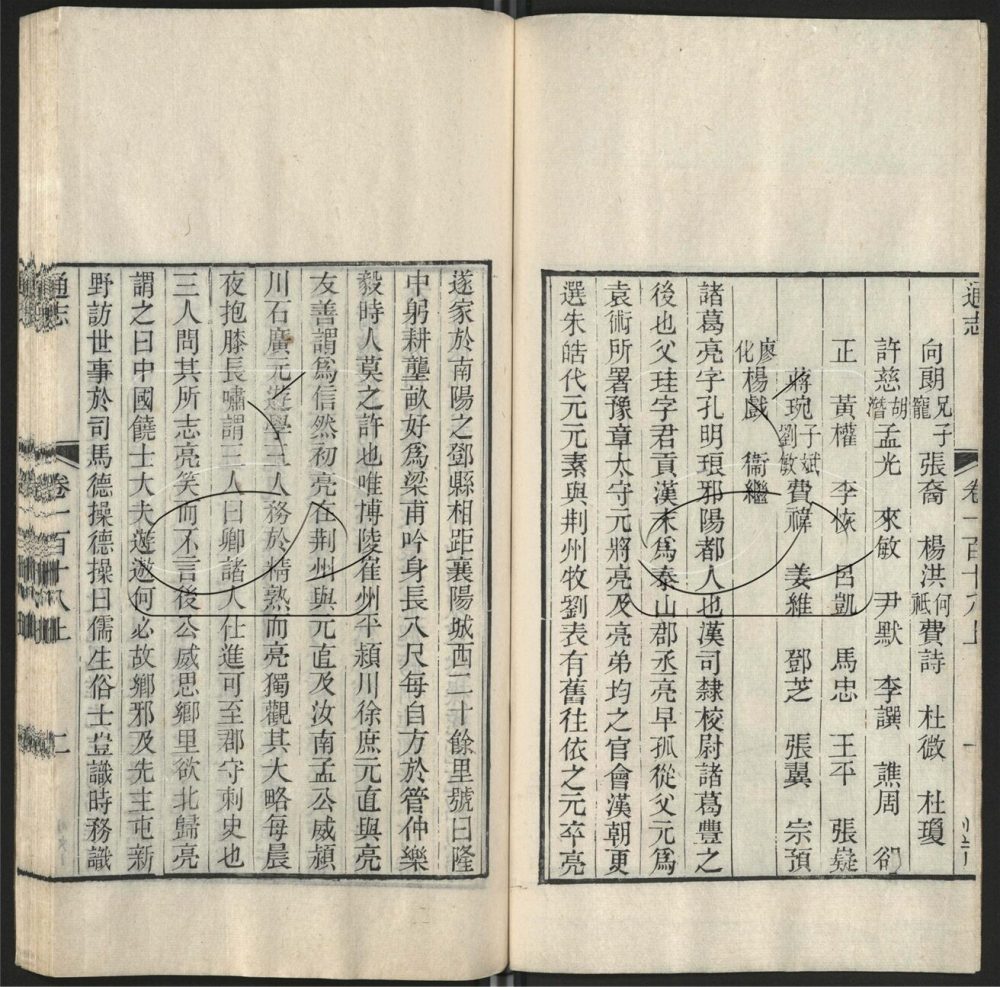 通志
卷一百十八上
一
向朗兄子寵 張裔 楊洪何祗 費詩 杜微 杜瓊
許慈胡潛 孟光 來敏 尹默 李譔 譙周 郤
正 黃權 李恢 呂凱 馬忠 王平 張嶷
蔣琬子斌劉敏 費禕 姜維 鄧芝 張翼 宗預
廖化 楊戲 衞繼
諸葛亮字孔明琅邪陽都人也漢司隸校尉諸葛豐之
後也父珪字君貢漢末爲泰山郡丞亮早孤從父元爲
袁術所署豫章太守元將亮及亮弟均之官會漢朝更
選朱皓代元元素與荆州牧劉表有舊往依之元卒亮
遂家於南陽之鄧縣相距襄陽城西二十餘里號曰隆
中躬耕壟畝好爲梁甫吟身長八尺每自方於管仲樂
毅時人莫之許也唯博陵崔州平潁川徐庶元直與亮
友善謂爲信然初亮在荆州與元直及汝南孟公威潁
川石廣元遊學三人務於精熟而亮獨觀其大略每晨
夜抱膝長嘯謂三人曰卿諸人仕進可至郡守刺史也
三人問其所志亮笑而不言後公威思鄉里欲北歸亮
謂之曰中國饒士大夫遊遨何必故鄉邪及先主屯新
野訪世事於司馬德操德操曰儒生俗士豈識時務識
通志
卷一百十八上
二